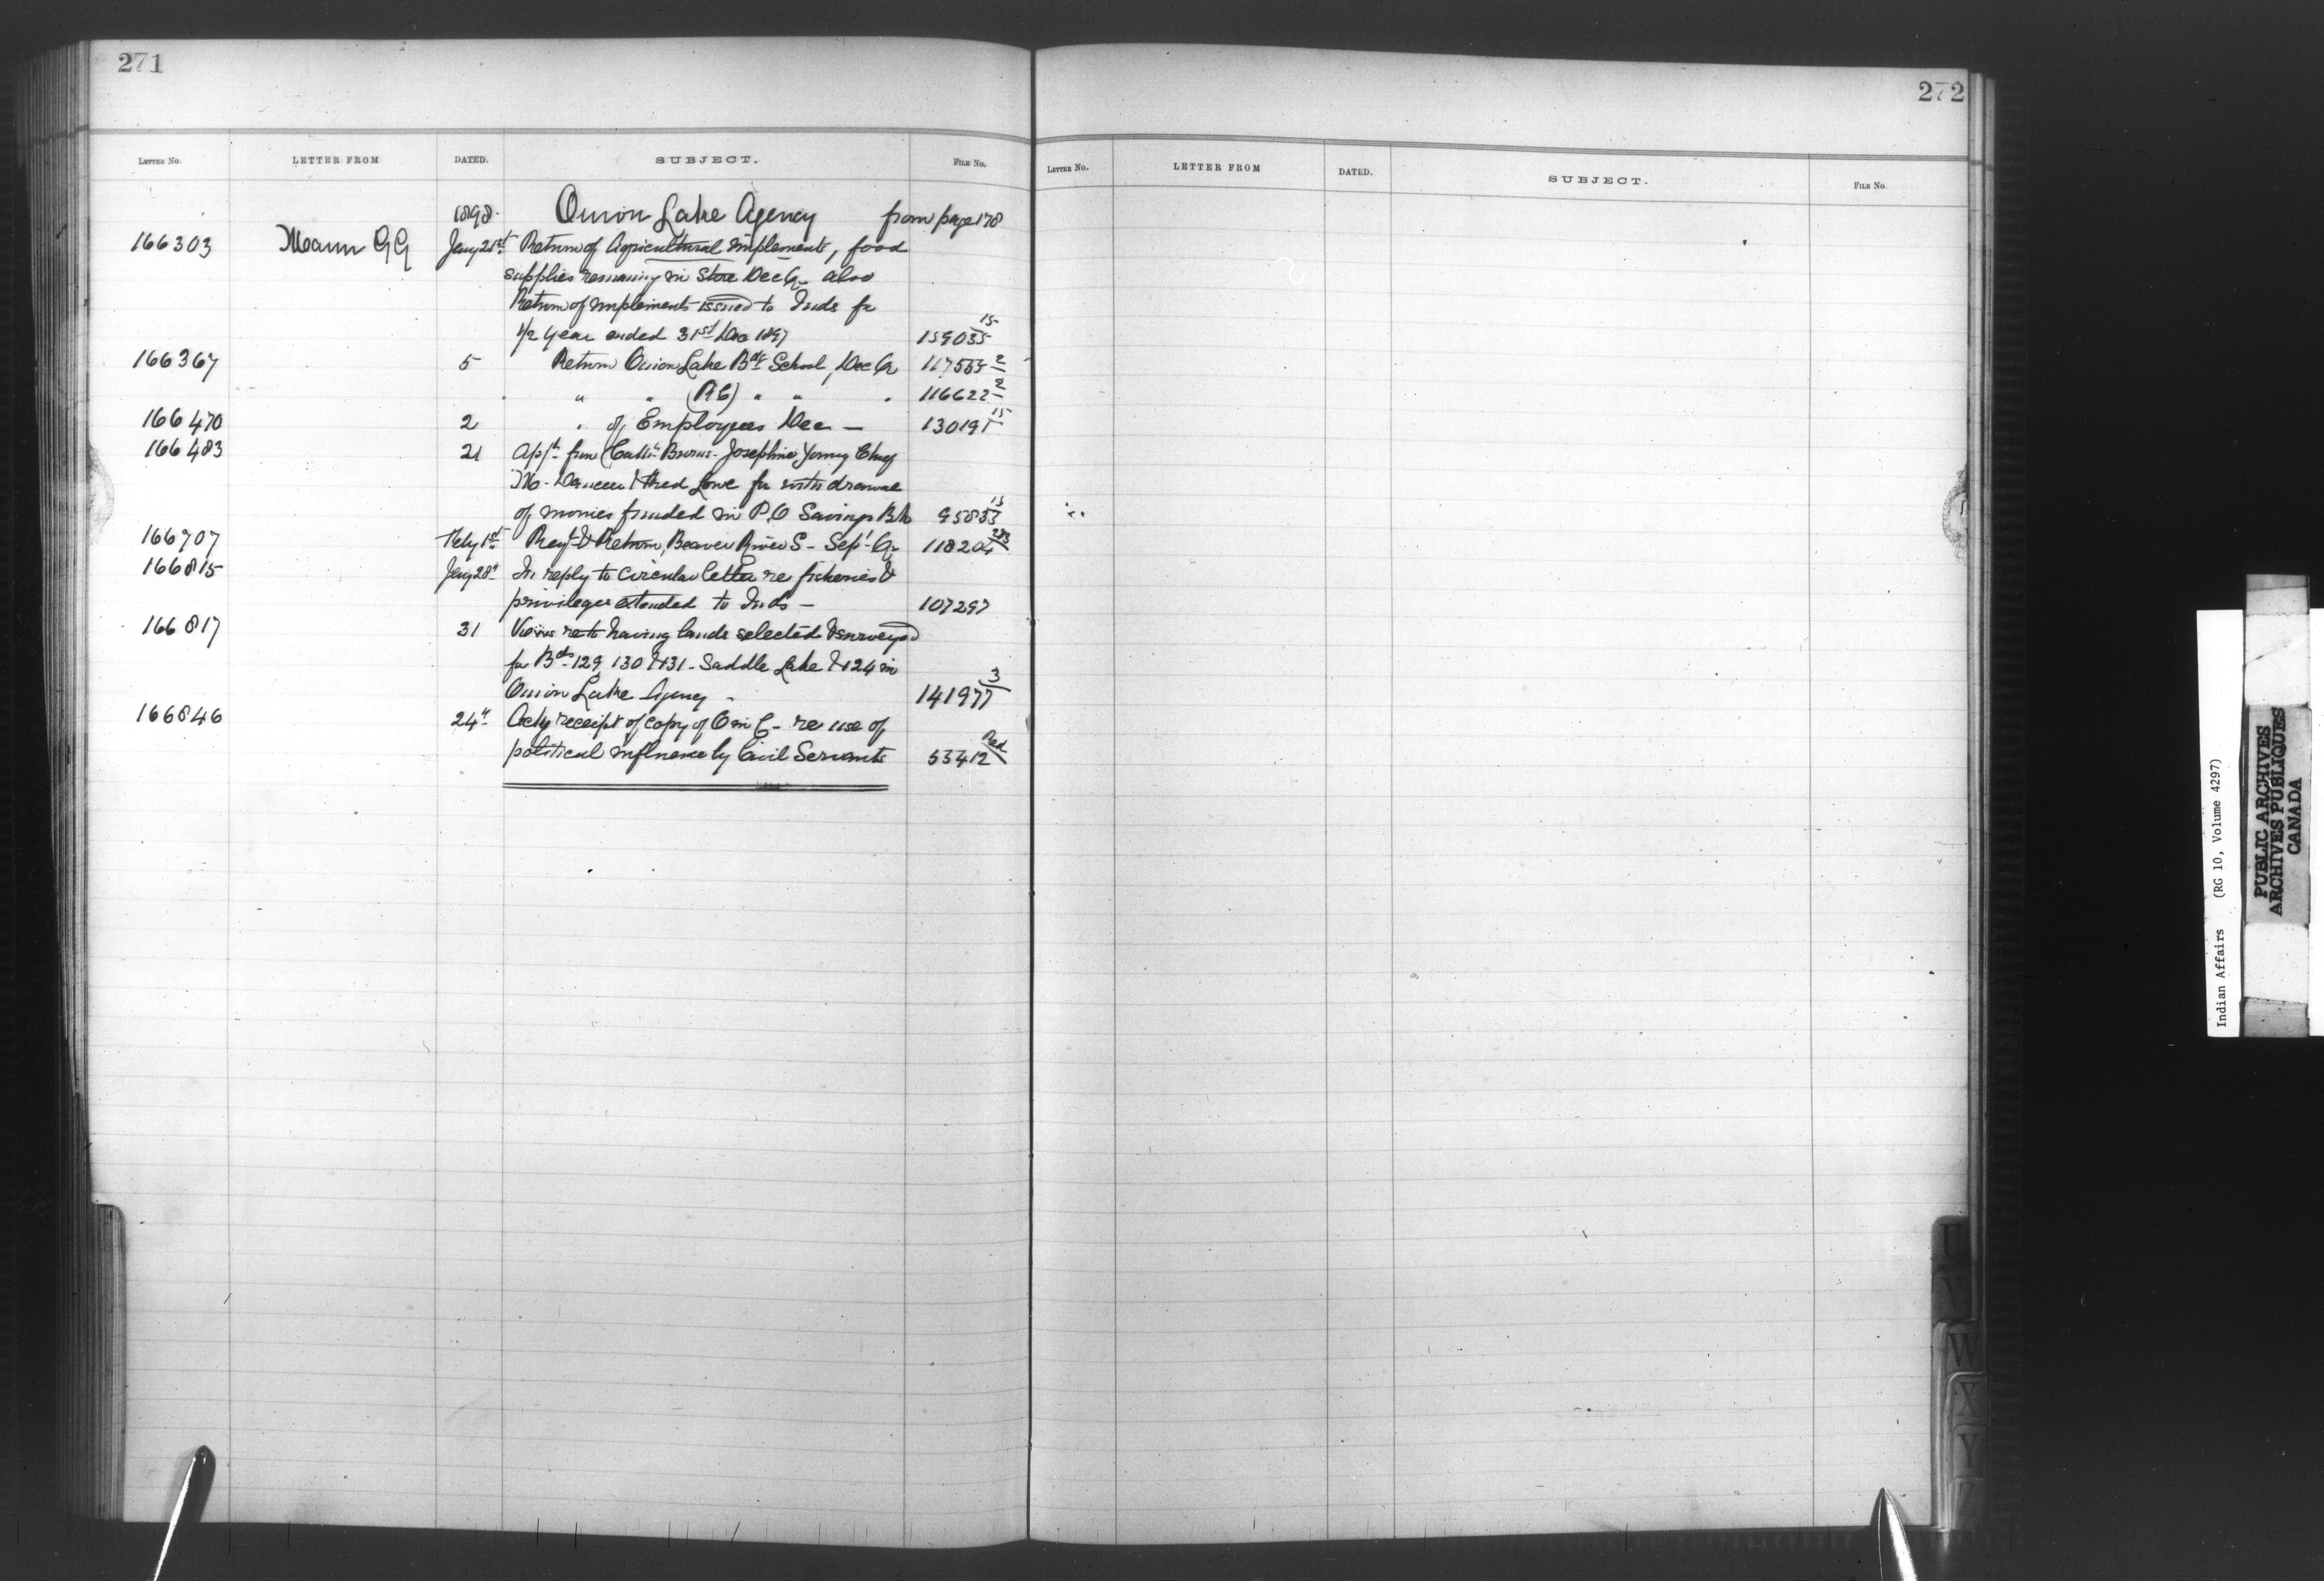 271
LETTER No. LETTER FROM DATED. SUBJECT. FILE No.
1898. Onion Lake Agency from page 178
166303 Mann GG Jany 21st Return of Agricultural Implements, food
supplies remaining in Store Dec Qr also
Return of Implements issued to Inds for
1/2 year ended 31st Dec 1897 159035 15
166367 5 Return Onion Lake Bdg School, Dec Qr 117555 2
" " (RC) " " " 116622 2
166470 2 " of Employees Dec — 130191 15
166483 21 from Josephine Young Chief
for withdrawal
of monies funded in P.O Savings Bk 95833 15
166707 Feby 1st & Return, Beaver River S - Sept Qr 118204 283
166815 Jany 28th In reply to circular letter re fisheries &
privileges extended to Inds — 107297
166817 31 Views re having lands selected & surveyed
for Bds 129, 130 & 131 - Saddle Lake & 124 in
Onion Lake Agency - 141977 3
166846 24th Ackg receipt of copy of O in C - re use of
political influence by Civil Servants 53412 Red
272
LETTER No. LETTER FROM DATED. SUBJECT. FILE No.
U
V
W
X
Y
Z
Indian Affairs (RG 10, Volume 4297)
PUBLIC ARCHIVES
ARCHIVES PUBLIQUES
CANADA